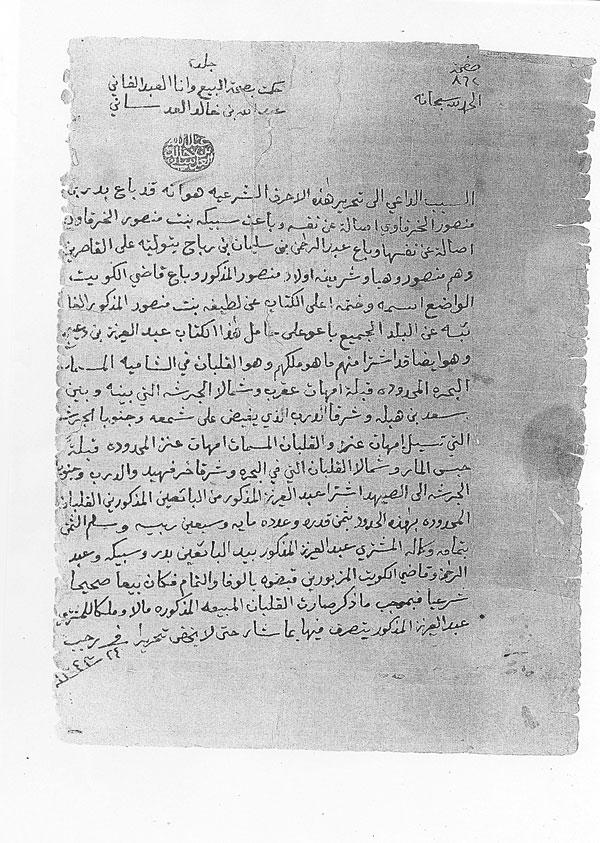 صفحة
٨٦٢
الحمد لله سبحانه
جلد ٢
حكمت بصحة البيع وانا العبد الفاني
عبد الله بن خالد العدساني
السبب الداعي الى تحرير هذه الاحرف الشرعيه هو انه قد باع بدر بن
منصور الخرقاوي اصالة عن نفسه وباعت سبيكه بنت منصور الخرقاوي
اصالة عن نفسها وباع عبد الرحمن بن سليمان بن رباح بتوليته على القاصرين
وهم منصور وهيا وشريفه اولاد منصور المذكور وباع قاضي الكويت
الواضع اسمه وختمه اعلى الكتاب عن لطيفه بنت منصور المذكور الغا
ئبه عن البلد الجميع باعو على حامل هذا الكتاب عبد العزيز بن دعيج
وهو ايضا قد اشترا منهم ما هو ملكهم وهو القلبان في الشاميه المسمات
البحره المحدوده قبلة امهات عقرب وشمالا الجرشه التي بينه وبين
سعد بن هبله وشرقا الدرب الذي يفيض على شمعه وجنوبا الجرشه
التي تسيل امهات عنز والقلبان المسمات امهات عنز المحدوده قبلة
حبس المار وشمالا القلبان التي في البحره وشرقا فهيد والدرب وجنوبا
الجرشه الى الصيهد اشترا عبد العزيز المذكور من البائعين المذكورين القلبان
المحدوده بهذه الحدود بثمن قدره وعدده مايه وسبعين ربيه وسلم الثمن
بتمامه وكماله المشتري عبد العزيز المذكور بيد البائعين بدر وسبيكه وعبد
الرحمن وقاضي الكويت المزبورين قبضوه بالوفا والتمام فكان بيعا صحيحا
شرعيا فبموجب ما ذكر صارت القلبان المبيعه المذكوره مالا وملكا للمشتري
عبد العزيز المذكور يتصرف فيها بما شاء حتى لا يخفى تحريرا في رجب
٢٤